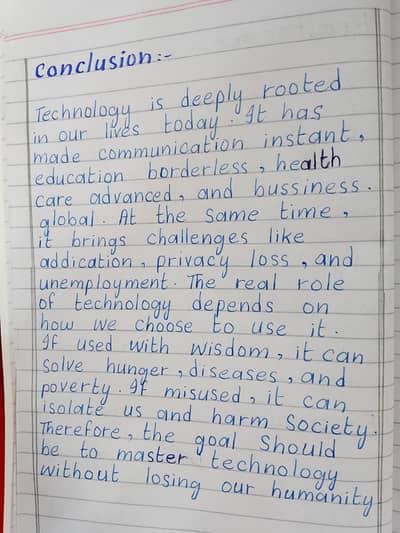 Conclusion:-
Technology is deeply rooted
in our lives today. It has
made communication instant,
education borderless, health
care advanced, and bussiness.
global. At the same time,
it brings challenges like
addication, privacy loss, and
unemployment. The real role
of technology depends on
how we choose to use it.
If used with wisdom, it can
solve hunger, diseases, and
poverty. If misused, it can
isolate us and harm Society.
Therefore, the goal Should
be to master technology
without losing our humanity